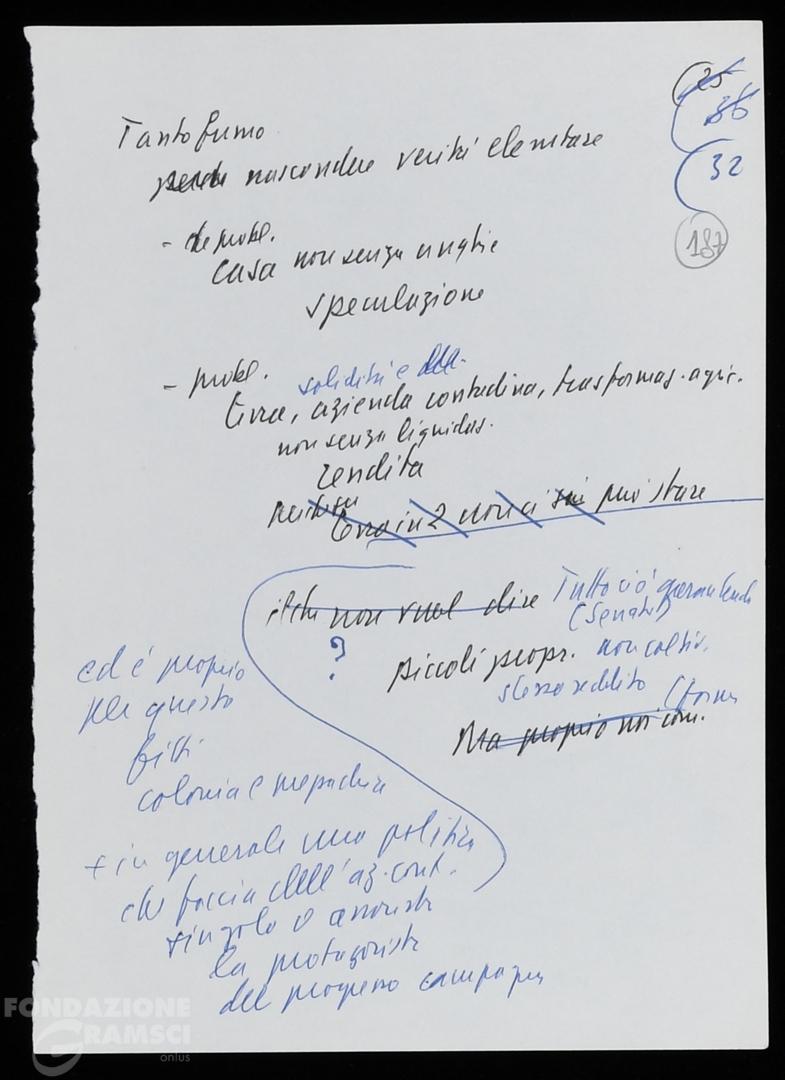 25
36
32
187
Tanto fumo
nascondere verità elementare
- che probl.
casa non senza unghie
speculazione
- probl.
solidità e
terra, azienda contadina, trasformaz. agric.
non senza liquidaz.
rendita
terra in 2 non ci si può stare
il che non vuol dire Tutto ciò garantendo
(Senato)
?
piccoli propr. non coltiv.
stesso reddito (forme
Ma proprio noi com.
ed è proprio
per questo
fitti
colonia e mezzadria
+ in generale una politica
che faccia dell'az. cont.
singola o associata
la protagonista
del progresso campagne
FONDAZIONE
GRAMSCI
onlus